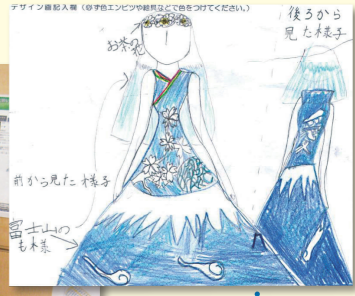 デザイン画記入欄（必ず色エンピツや絵具などで色をつけてください。）
お茶花
後ろから
見た様子
前から見た様子
富士山の
も様